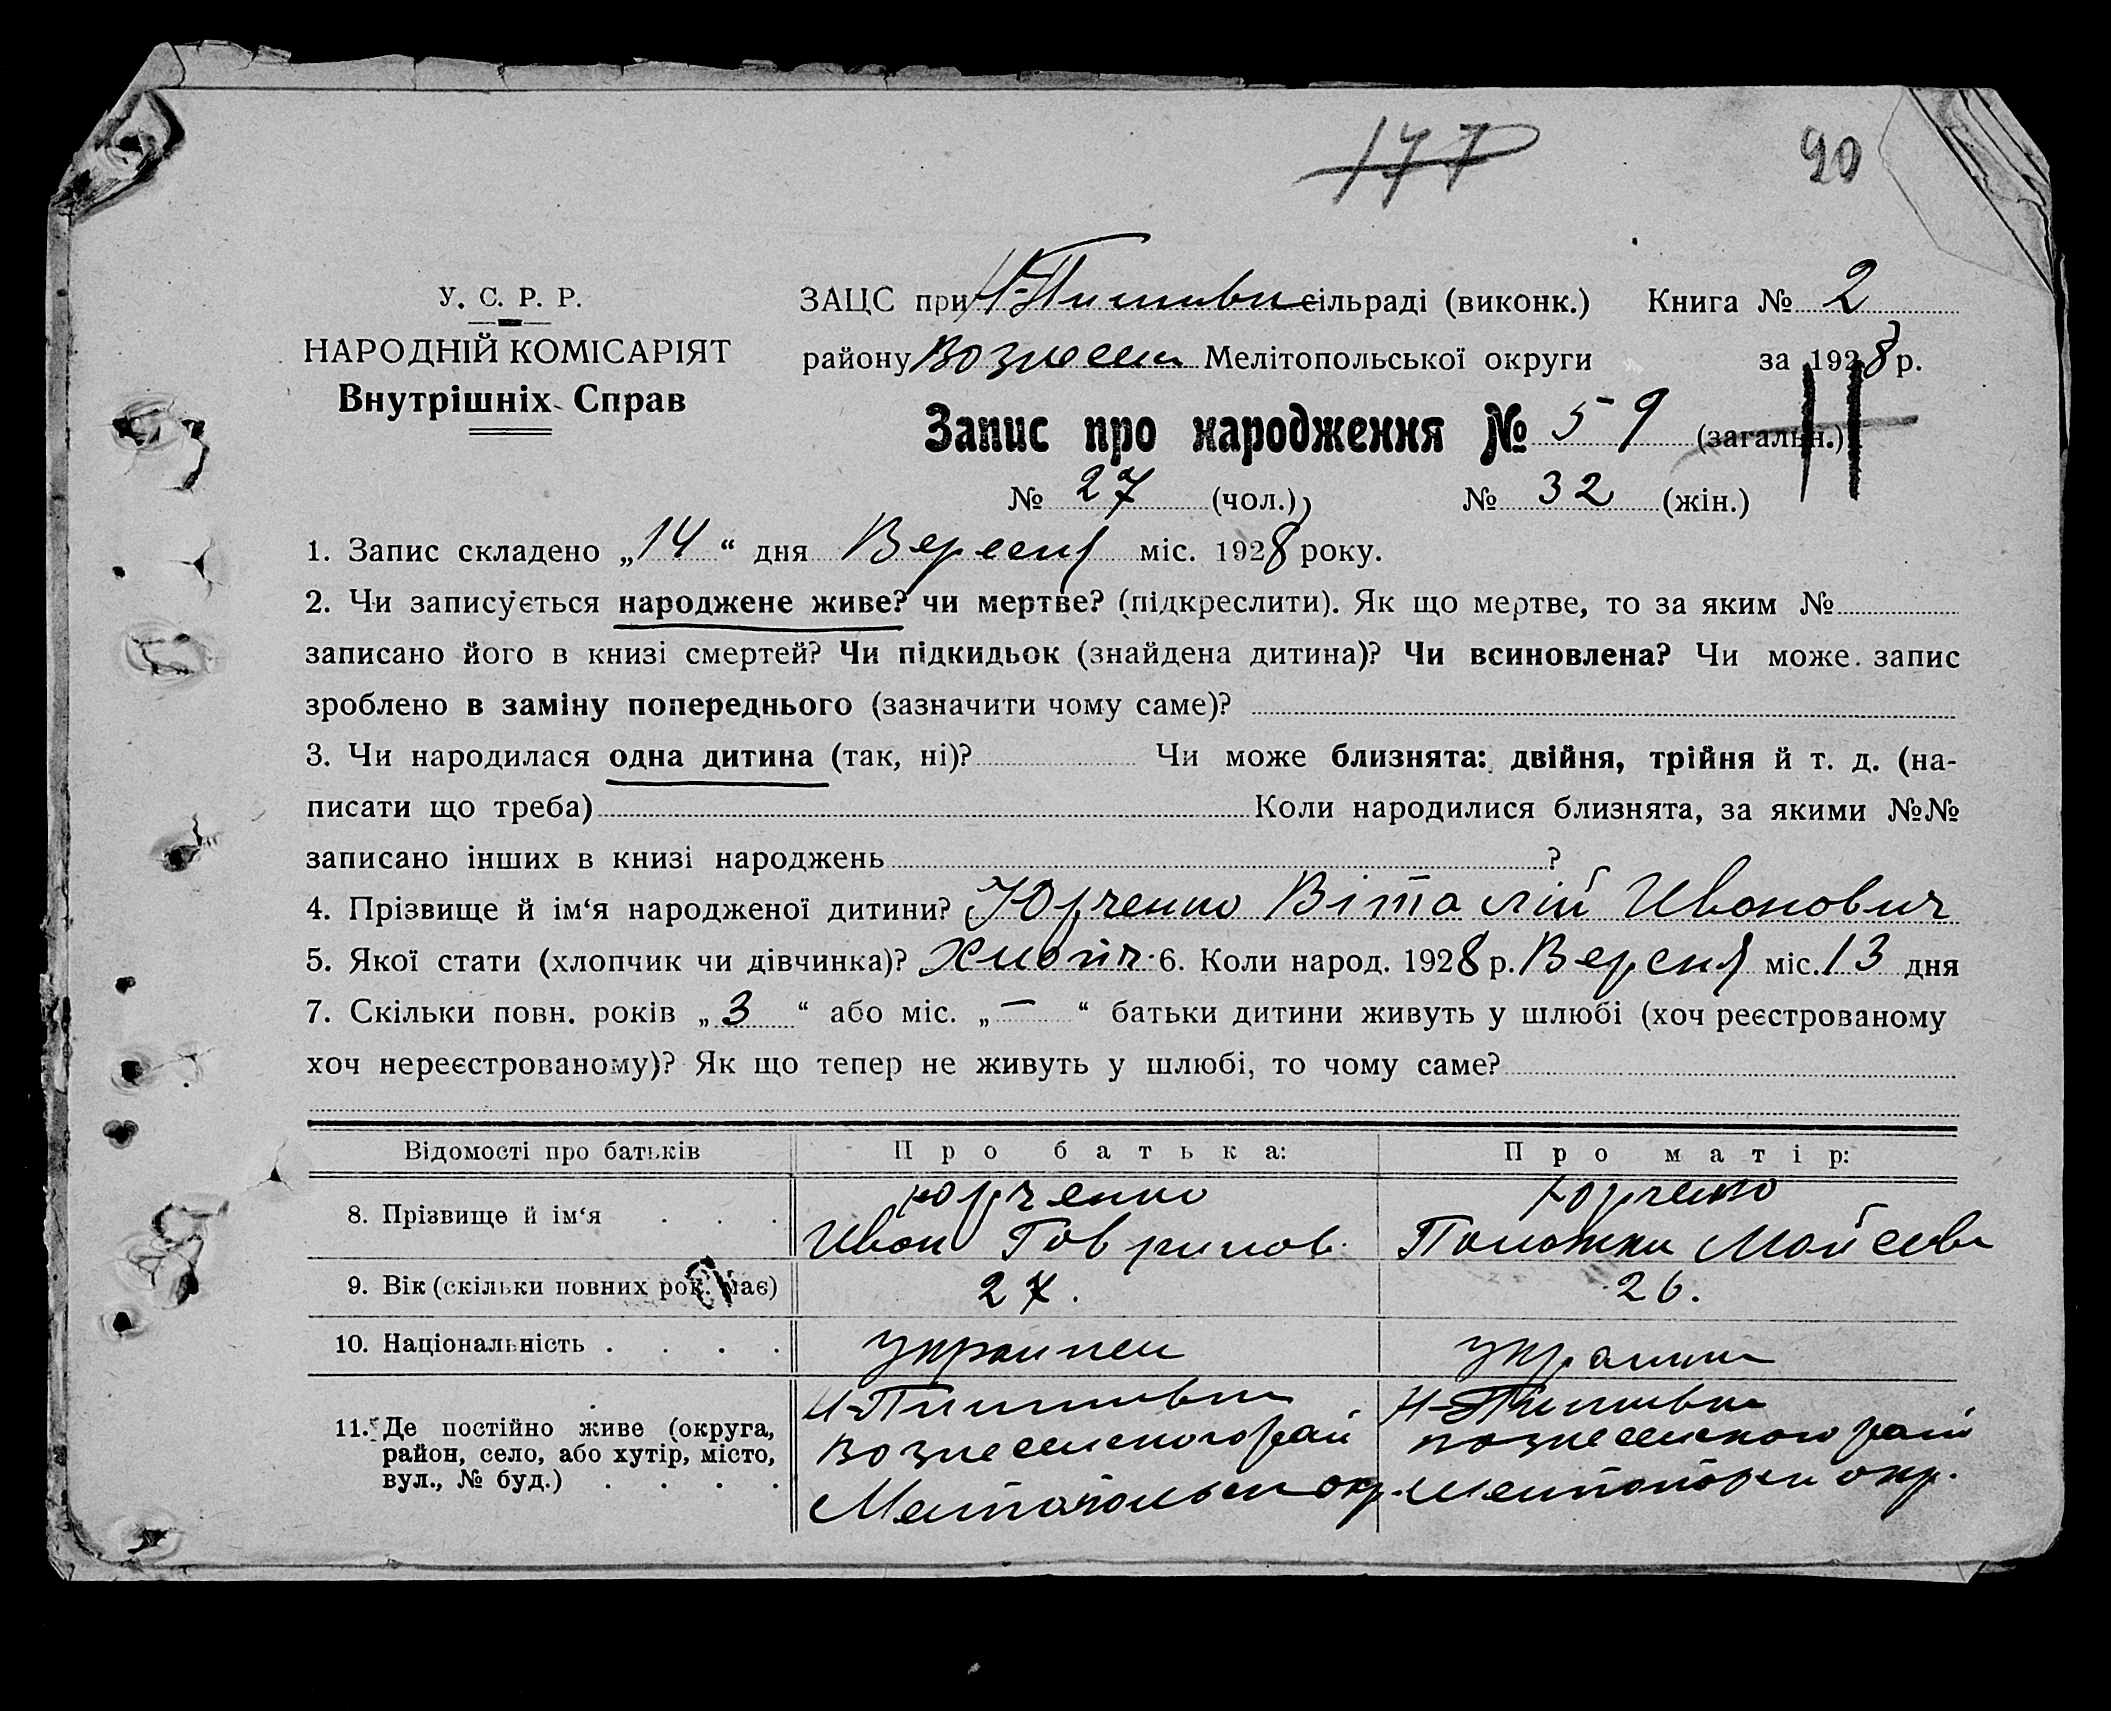 177 90
У. С. Р. Р. ЗАЦС при Н-Пилипівки сільраді (виконк.) Книга № 2
НАРОДНІЙ КОМІСАРІЯТ району Вознесен Мелітопольської округи за 1928 р.
Внутрішніх Справ
Запис про народження № 59 (загальн.)
№ 27 (чол.) № 32 (жін.)
1. Запис складено „14“ дня Вересня міс. 1928 року.
2. Чи записується народжене живе? чи мертве? (підкреслити). Як що мертве, то за яким №
записано його в книзі смертей? Чи підкидьок (знайдена дитина)? Чи всиновлена? Чи може запис
зроблено в заміну попереднього (зазначити чому саме)?
3. Чи народилася одна дитина (так, ні)? Чи може близнята: двійня, трійня й т. д. (на-
писати що треба) Коли народилися близнята, за якими №№
записано інших в книзі народжень ?
4. Прізвище й ім‘я народженої дитини? Юрченко Віталій Иванович
5. Якої стати (хлопчик чи дівчинка)? Хлопч. 6. Коли народ. 1928 р. Версня міс. 13 дня
7. Скільки повн. років „3“ або міс. „—“ батьки дитини живуть у шлюбі (хоч реєстрованому
хоч нереєстрованому)? Як що тепер не живуть у шлюбі, то чому саме?
Відомості про батьків Про батька: Про матір:
8. Прізвище й ім‘я . . . Юрченко Юрченко
Иван Гаврилов. Мойсеев
9. Вік (скільки повних рок. має) 27. 26.
10. Національність . . . . українец україн
11. Де постійно живе (округа,
район, село, або хутір, місто,
вул., № буд.) . . . .
Вознесенского рай Вознесенского рай
Мелітопольськ окр. окр.